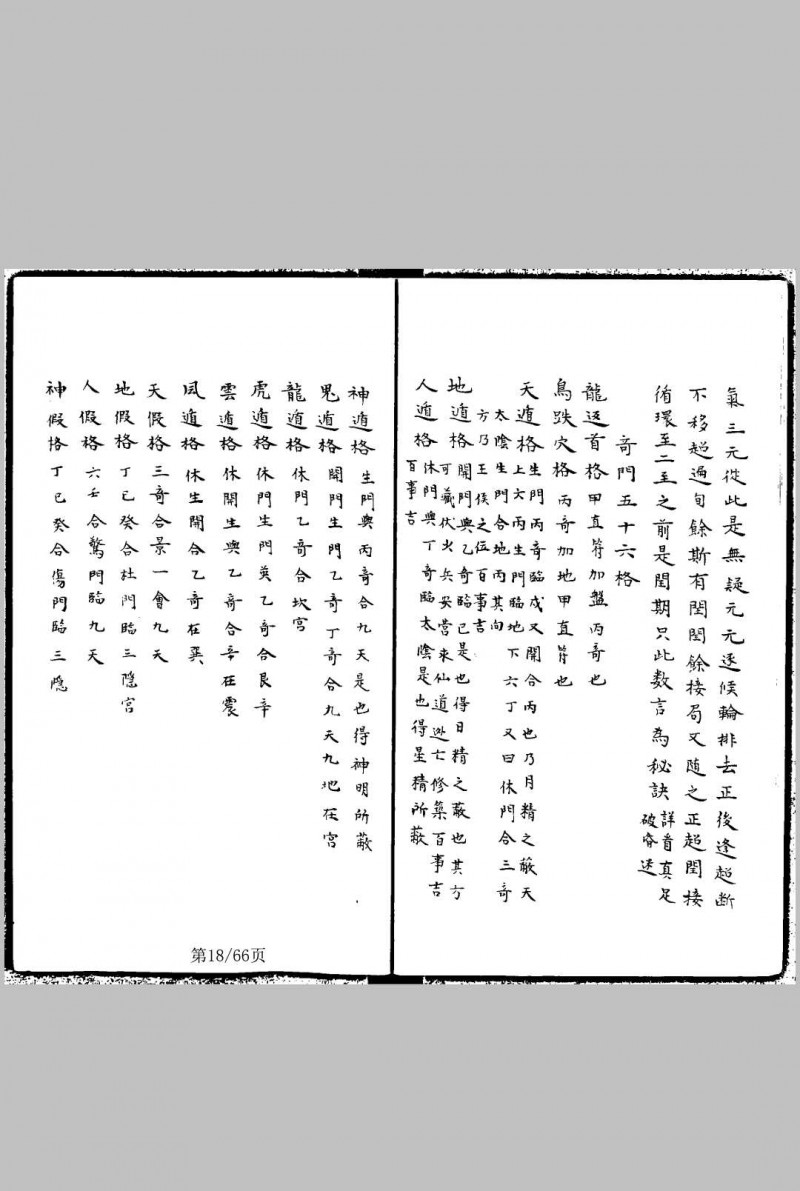 氣三元從此是無疑元元逐候輪排去正後逢超斷
不移超過旬餘斯有閏閏餘接局又隨之正超閏接
循環至二至之前是閏期只此数言為秘訣
詳看真足
破昏迷
奇門五十六格
龍返首格甲直符加盤丙奇也
鳥跌穴格丙奇加地甲直符也
天遁格生門丙奇臨戊又開合丙也乃月精之蔽天
上六丙生門臨地下六丁又曰休門合三奇
太陰生門合地丙其向
方乃王侯之位百事吉
地遁格開門與乙奇臨己是也得日精之蔽也其方
可藏伏火兵安營求仙道逃亡修築百事吉
人遁格休門與丁奇臨太陰是也得星精所蔽
百事吉
神遁格生門與丙奇合九天是也得神明所蔽
鬼遁格開門生門乙奇丁奇合九天九地在宮
龍遁格休門乙奇合坎宮
虎遁格休門生門英乙奇合艮辛
雲遁格休開生與乙奇合辛在震
風遁格休生開合乙奇在巽
天假格三奇合景一會九天
地假格丁己癸合杜門臨三隱宮
人假格六壬合驚門臨九天
神假格丁己癸合傷門臨三隱
第18/66页